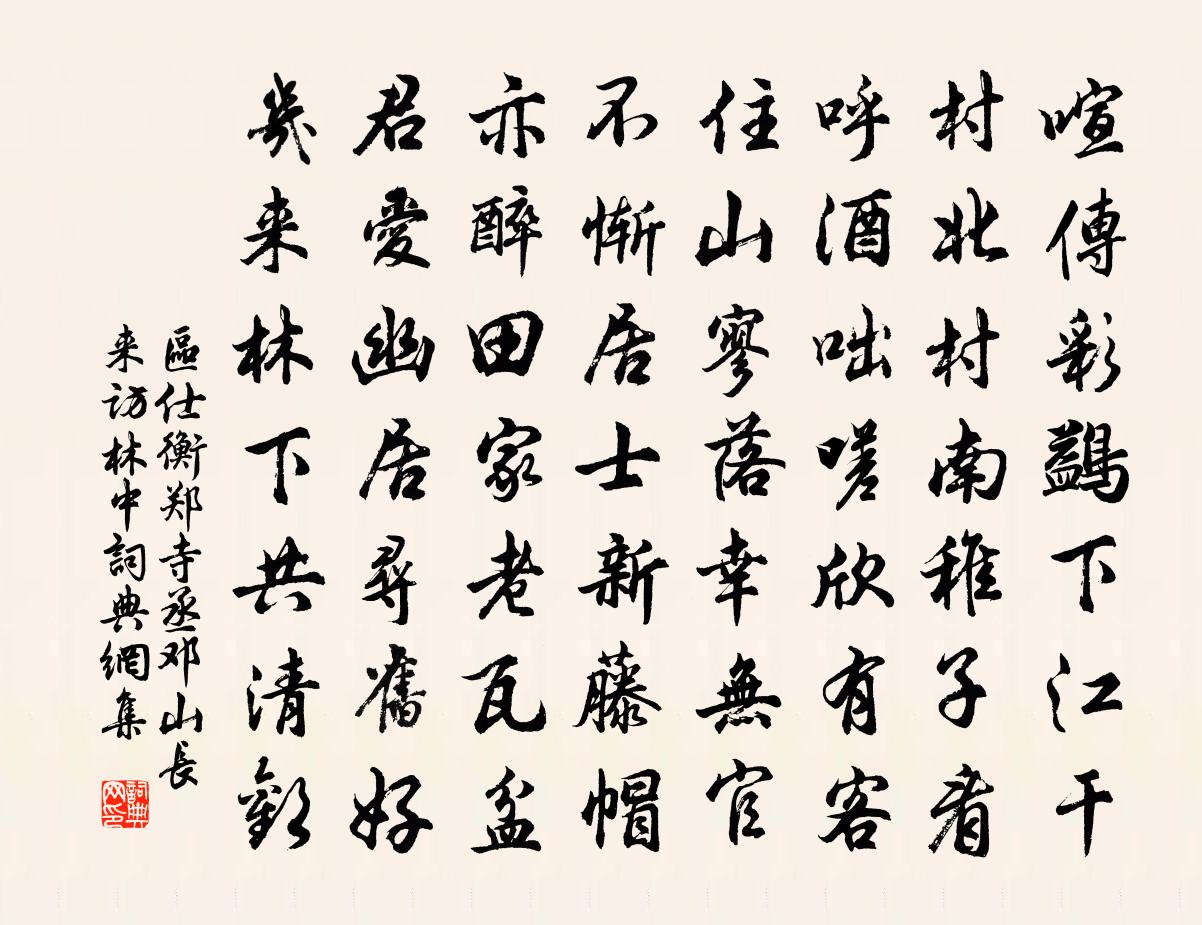 喧傳彩鷁下江干
村北村南稚子看
呼酒咄嗟欣有客
住山寥落幸無官
不慚居士新藤帽
亦醉田家老瓦盆
君愛幽居尋舊好
幾来林下共清歡
區仕衡郑寺丞邓山長
来访林中詞典網集
詞典网印